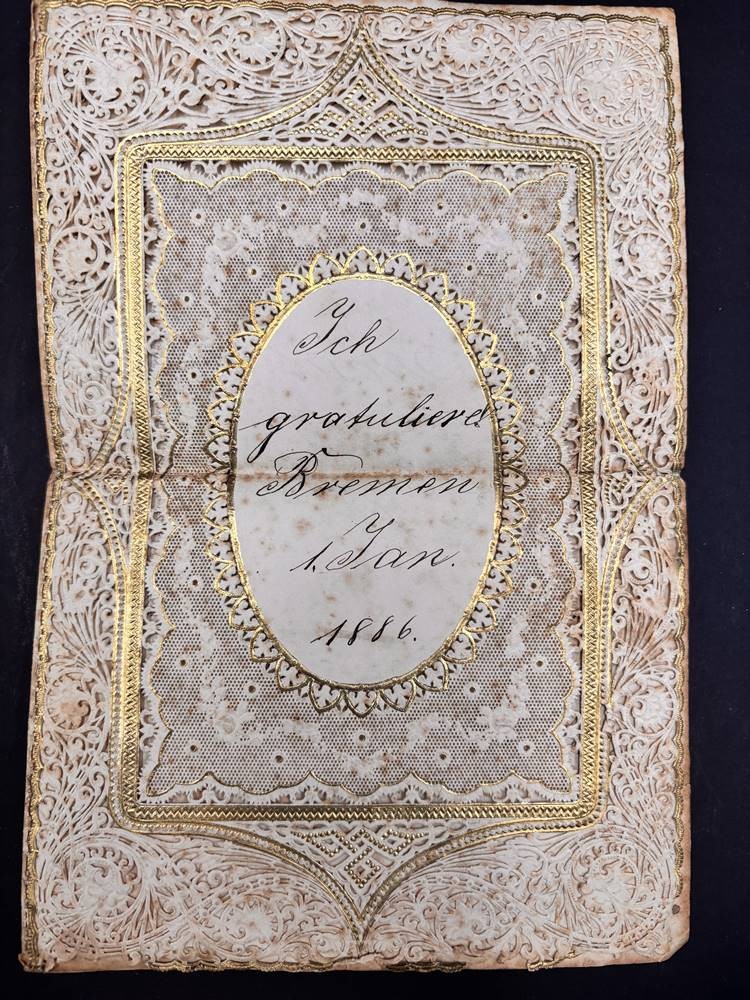 Ich
gratuliere!
Bremen
1. Jan.
1886.